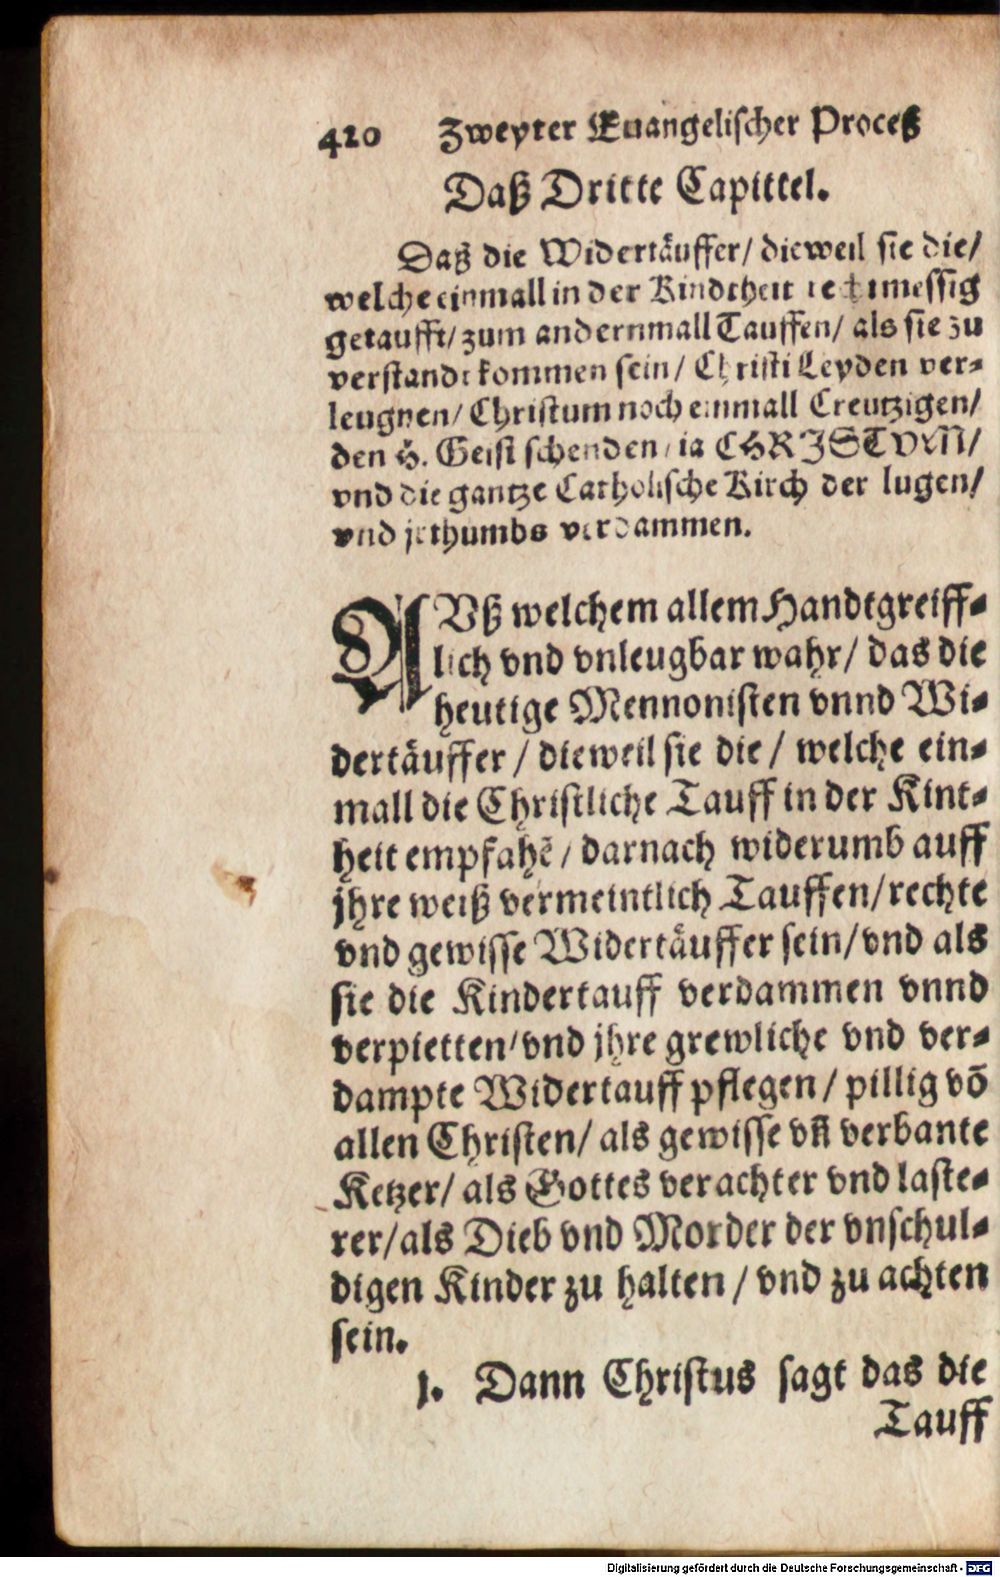 420 Zweyter Euangelischer Proceß
Daß Dritte Capittel.
Daß die Widertäuffer/ dieweil sie die/
welche einmall in der Kindtheit rechtmessig
getaufft/ zum andernmall Tauffen/ als sie zu
verstandt kommen sein/ Christi Leyden ver-
leugnen/ Christum noch einmall Creutzigen/
den H. Geist schenden/ ia CHRISTVM/
vnd die gantze Catholische Kirch der lugen/
vnd jrthumbs verdammen.
AVß welchem allem Handtgreiff-
lich vnd vnleugbar wahr/ das die
heutige Mennonisten vnnd Wi-
dertäuffer / dieweil sie die / welche ein-
mall die Christliche Tauff in der Kint-
heit empfahē / darnach widerumb auff
jhre weiß vermeintlich Tauffen/ rechte
vnd gewisse Widertäuffer sein/ vnd als
sie die Kindertauff verdammen vnnd
verpietten/ vnd jhre grewliche vnd ver-
dampte Widertauff pflegen / pillig võ
allen Christen/ als gewisse vñ verbante
Ketzer/ als Gottes verachter vnd laste-
rer/ als Dieb vnd Morder der vnschul-
digen Kinder zu halten / vnd zu achten
sein.
1. Dann Christus sagt das die
Tauff
Digitalisierung gefördert durch die Deutsche Forschungsgemeinschaft - DFG